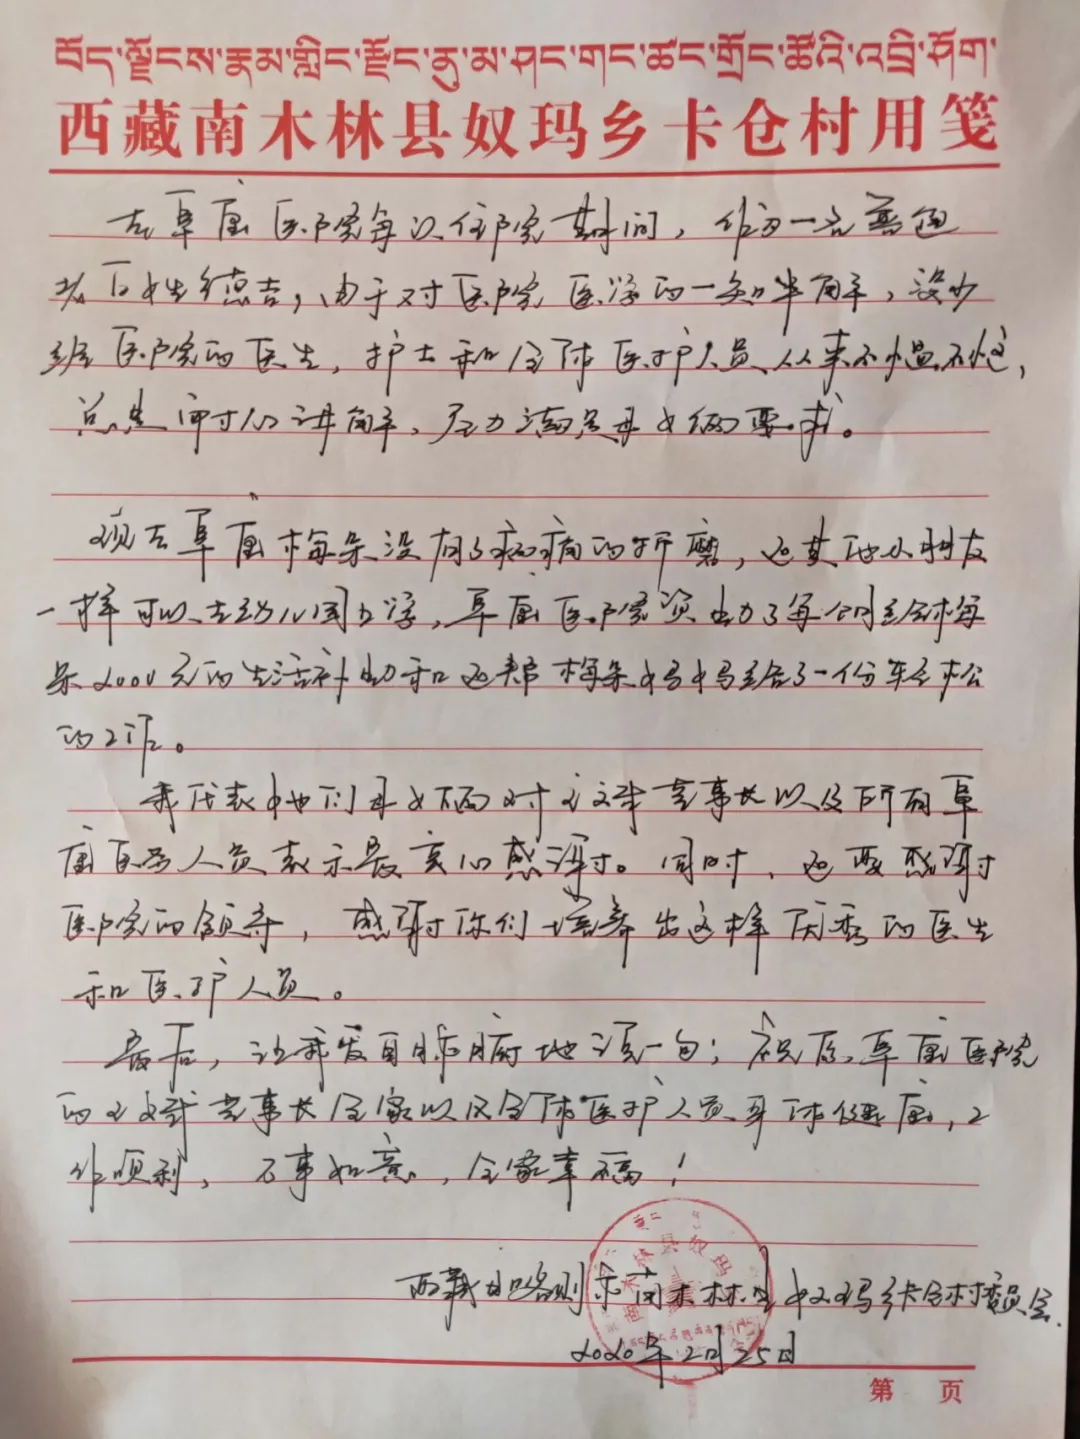 བོད་ལྗོངས་རྣམ་གླིང་རྫོང་ནུ་མ་ཤང་གང་ཚང་གྲོང་ཚོའི་འབྲི་ཤོག
西藏南木林县奴玛乡卡仓村用笺
在阜康医院每次住院期间，作为一名普通
老百姓德吉，由于对医院医学的一知半解，没少
医院的医生，护士和全体医护人员从来不愠不怒，
总是耐心讲解，尽力满足母女俩要求。
现在阜康梅朵没有了病痛的折磨，也其他小朋友
一样可以去幼儿园上学，阜康医院资助了每个月给梅
朵2000元的生活补助和也帮梅朵妈妈给了一份轻松
的工作。
我代表她们母女俩对王斌董事长以及所有阜
康医务人员表示最衷心感谢。同时，也要感谢
医院的领导，感谢你们培养出这样优秀的医生
和医护人员。
最后，让我发自肺腑地说一句；祝愿阜康医院
的王斌董事长全家以及全体医护人员身体健康，工
作顺利，万事如意，全家幸福！
西藏日喀则市南木林县奴玛乡卡仓村委员会.
2020年2月25日
第 页